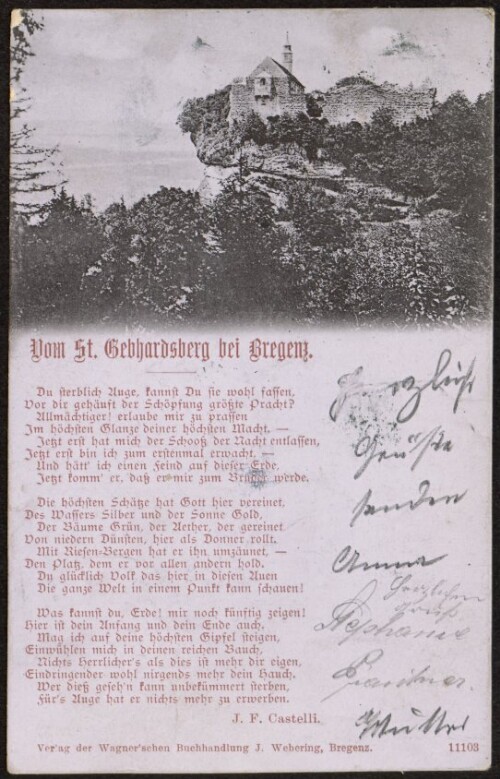 Vom St. Gebhardsberg bei Bregenz.
Du sterblich Auge, kannst Du sie wohl fassen,
Vor dir gehäuft der Schöpfung größte Pracht?
Allmächtiger! erlaube mir zu prassen
Im höchsten Glanze deiner höchsten Macht. —
Jetzt erst hat mich der Schooß der Nacht entlassen,
Jetzt erst bin ich zum erstenmal erwacht. —
Und hätt' ich einen Feind auf dieser Erde,
Jetzt komm' er, daß er mir zum Bruder werde.
Die höchsten Schätze hat Gott hier vereinet,
Des Wassers Silber und der Sonne Gold,
Der Bäume Grün, der Aether, der gereinet
Von niedern Dünsten, hier als Donner rollt.
Mit Riesen-Bergen hat er ihn umzäunet, —
Den Platz, dem er vor allen andern hold.
Du glücklich Volk das hier in diesen Auen
Die ganze Welt in einem Punkt kann schauen!
Was kannst du, Erde! mir noch künftig zeigen!
Hier ist dein Anfang und dein Ende auch.
Mag ich auf deine höchsten Gipfel steigen,
Einwühlen mich in deinen reichen Bauch,
Nichts Herrlicher's als dies ist mehr dir eigen,
Eindringender wohl nirgends mehr dein Hauch.
Wer dieß geseh'n kann unbekümmert sterben,
Für's Auge hat er nichts mehr zu erwerben.
J. F. Castelli.
Herzliche
Grüße
senden
Anna
Herzlichen
Gruß
Stephanie
Mutter
Verlag der Wagner'schen Buchhandlung J. Webering, Bregenz. 11103